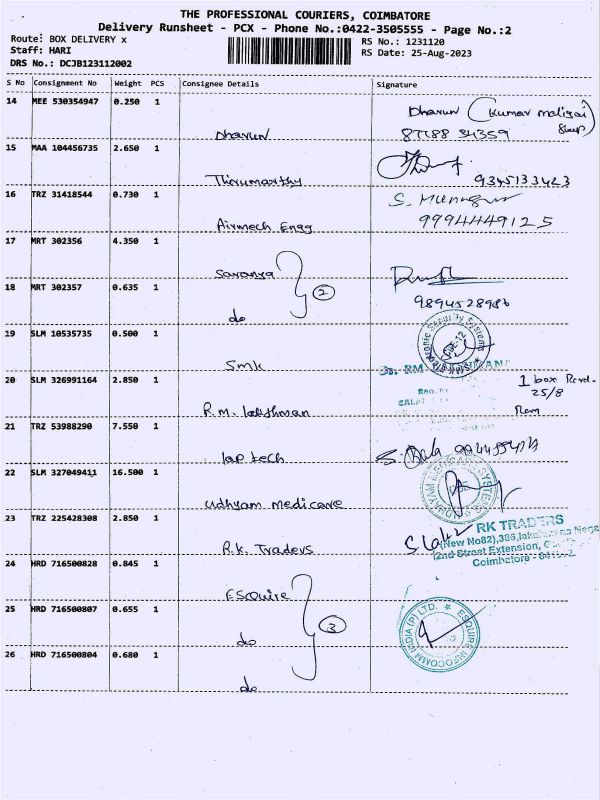 THE PROFESSIONAL COURIERS, COIMBATORE
Delivery Runsheet - PCX - Phone No.:0422-3505555 - Page No.:2
Route: BOX DELIVERY x
RS No.: 1231120
Staff: HARI
RS Date: 25-Aug-2023
DRS No.: DCJB123112002
S No Consignment No Weight PCS Consignee Details Signature
14 MEE 530354947 0.250 1
Dharun
Dharun (Kumar
15 MAA 104456735 2.650 1
Thirumarthy
9345133423
16 TRZ 31418544 0.730 1
Airmech Engg
9994449125
17 MRT 302356 4.350 1
Saranya
18 MRT 302357 0.635 1
do
2
9894528986
19 SLM 10535735 0.500 1
Smk
20 SLM 326991164 2.850 1
R.M. lakthman
1 box Rcvd.
25/8
Ram
21 TRZ 53988290 7.550 1
lap tech
22 SLM 327049411 16.500 1
Udhyam medicare
23 TRZ 225428308 2.850 1
R.K. Traders
RK TRADERS
2nd Street Extension,
Coimbatore
24 HRD 716500828 0.845 1
ESquire
25 HRD 716500807 0.655 1
do
3
ESQUIRE INFOCOMM INDIA (P) LTD.
26 HRD 716500804 0.680 1
do